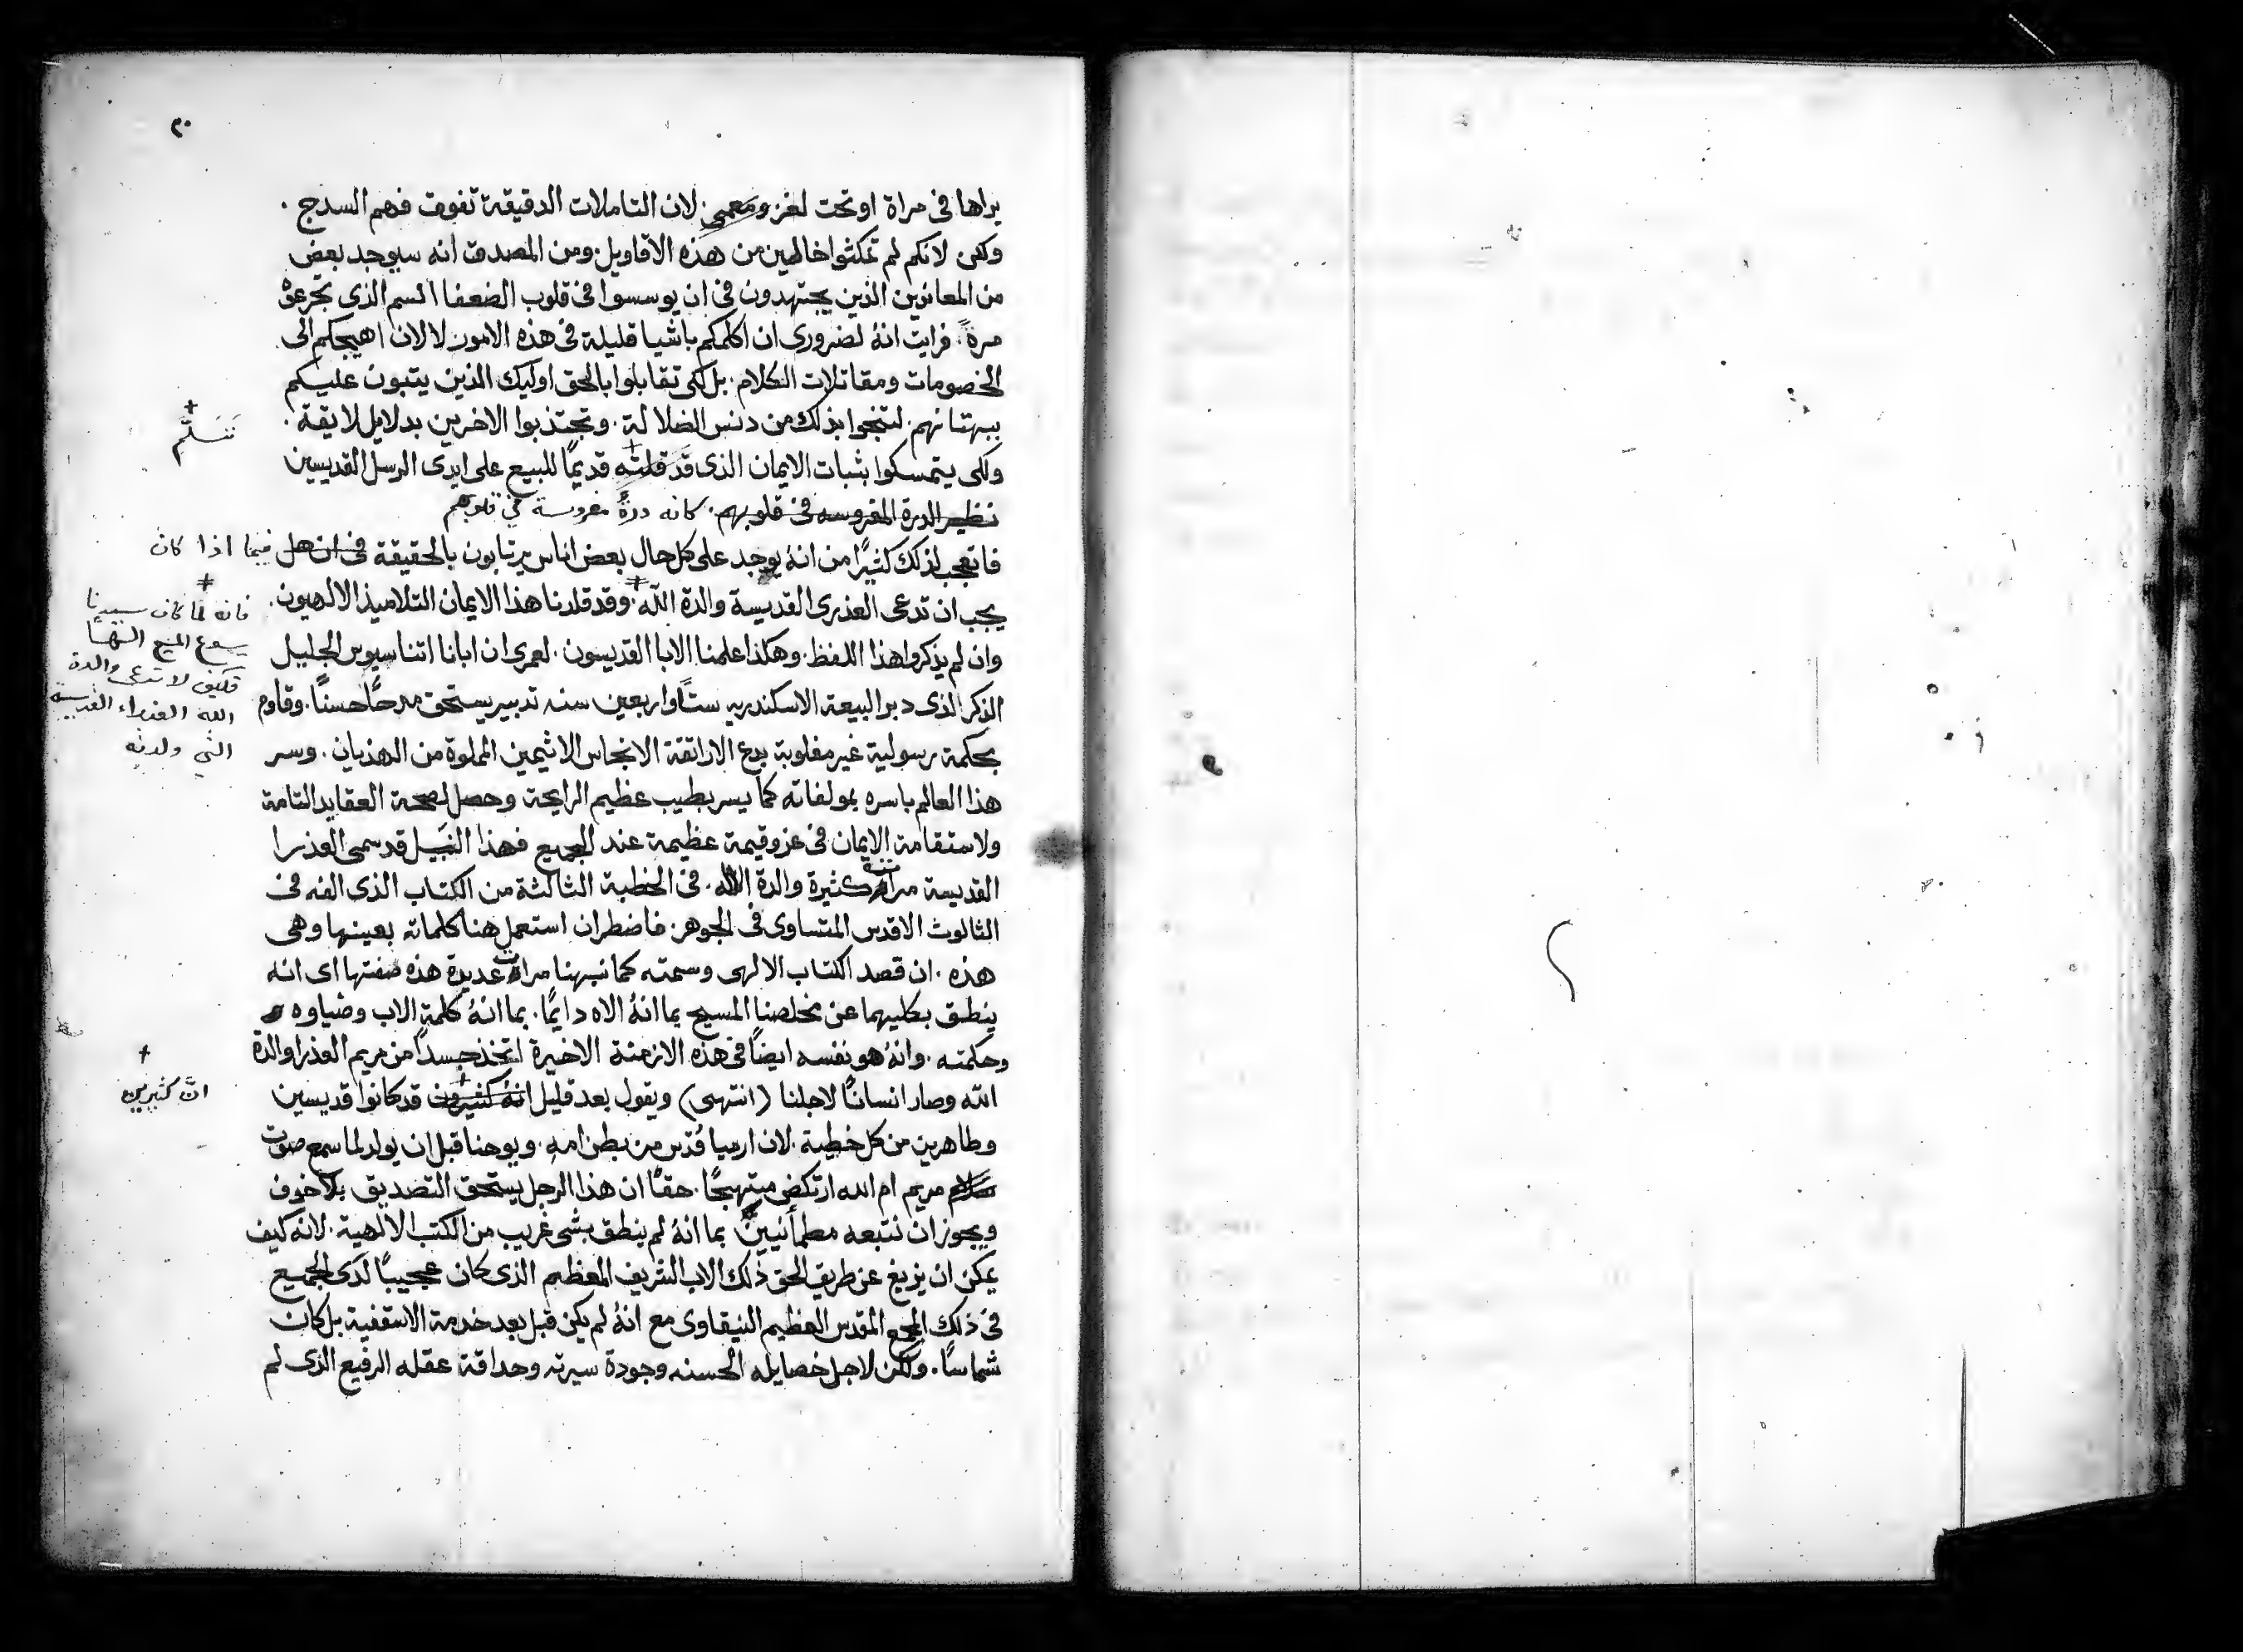 ٣٠
يراها فى مراة او تحت لغز ومعمى. لان التاملات الدقيقة تفوق فهم السدج.
ولكن لانكم لم تمكثوا خاليين من هذه الاقاويل. ومن المصدق انه سيوجد بعض
من المعاندين الذين يجتهدون فى ان يوسسوا فى قلوب الضعفا السم الذى تجرعوه
مرةً. فرايت انهُ لضرورى ان اكلمكم باشيا قليلة فى هذه الامور لا لان اهيجكم الى
الخصومات ومقاتلات الكلام. بل لكى تقابلوا بالحق اوليك الذين يتبون عليكم
ببهتانهم. لتنجوا بذلك من دنس الضلالة. وتجتذبوا الاخرين بدلايل لايقة.
ولكى يتمسكوا بثبات الايمان الذى قد قلته قديمًا للبيع على ايدى الرسل القديسين
نظير الدرة المغروسه فى قلوبهم. كانه درةٌ مغروسة في قلوبهم
فاتعجب لذلك كثيرًا من انهُ يوجد على كل حال بعض اناس يرتابون بالحقيقة فى ان هل فيما اذا كان
يجب ان تدعى العذرى القديسة والدة الله. وقد قلدنا هذا الايمان التلاميذ الالهيون.
وان لم يذكروا هذا اللفظ. وهكذا علمنا الابا القديسون. لعمرى ان ابانا اتناسيوس الجليل
الذكر الذى دبر البيعة الاسكندريه ستًا واربعين سنه تدبير يستحق مدحًا حسنًا. وقاوم
بحكمة رسولية غير مغلوبة بدع الاراتقة الانجاس الاثيمين المملوة من الهذيان. وسر
هذا العالم باسره بمولفاته كما يسر بطيب عظيم الرايحة وحصل لصحة العقايد التامة
ولاستقامة الايمان فى عز وقيمة عظيمة عند الجميع فهذا النبيل قد سمى العذرا
القديسة مرات كثيرة والدة الاله. فى الخطبة الثالثة من الكتاب الذى الفه فى
الثالوث الاقدس المتساوى فى الجوهر. فاضطر ان استعمل هنا كلماته بعينها وهى
هذه. ان قصد الكتاب الالهى وسمته كما نبهنا مرات عديدة هذه صفتها اى انه
ينطق بكليهما عن مخلصنا المسيح بما انهُ الاه دايمًا. بما انهُ كلمة الاب وضياوه
وحكمته. وانهُ هو نفسه ايضًا فى هذه الازمنة الاخيرة اتخذ جسدًا من مريم العذرا والدة
الله وصار انسانًا لاجلنا (انتهى) ويقول بعد قليل انهُ كثيرون قد كانوا قديسين
وطاهرين من كل خطية. لان ارميا قُدّس من بطن امه. ويوحنا قبل ان يولد لما سمع صوت
سلام مريم ام الله ارتكض مبتهجًا. حقًا ان هذا الرجل يستحق التصديق بلا خوف
ويجوز ان نتبعه مطمأنيين بما انهُ لم ينطق بشى غريب من الكتب الالهية. لانه كيف
يمكن ان يزيغ عن طريق الحق ذلك الاب الشريف المعظم الذى كان عجيبًا لدى الجميع
فى ذلك المجمع المقدس العظيم النيقاوى مع انهُ لم يكن قبل بعد خدمة الاسقفية بل كان
شماسًا. ولكن لاجل خصايله الحسنه وجودة سيرته وحداقة عقله الرفيع الذى لم
تَسَلَّم
فانه لما كان سيدنا
يسوع المسيح الهًا
فكيف لا تدعى والدة
الله العذراء القديسة
التي ولدته
انَّ كثيرين